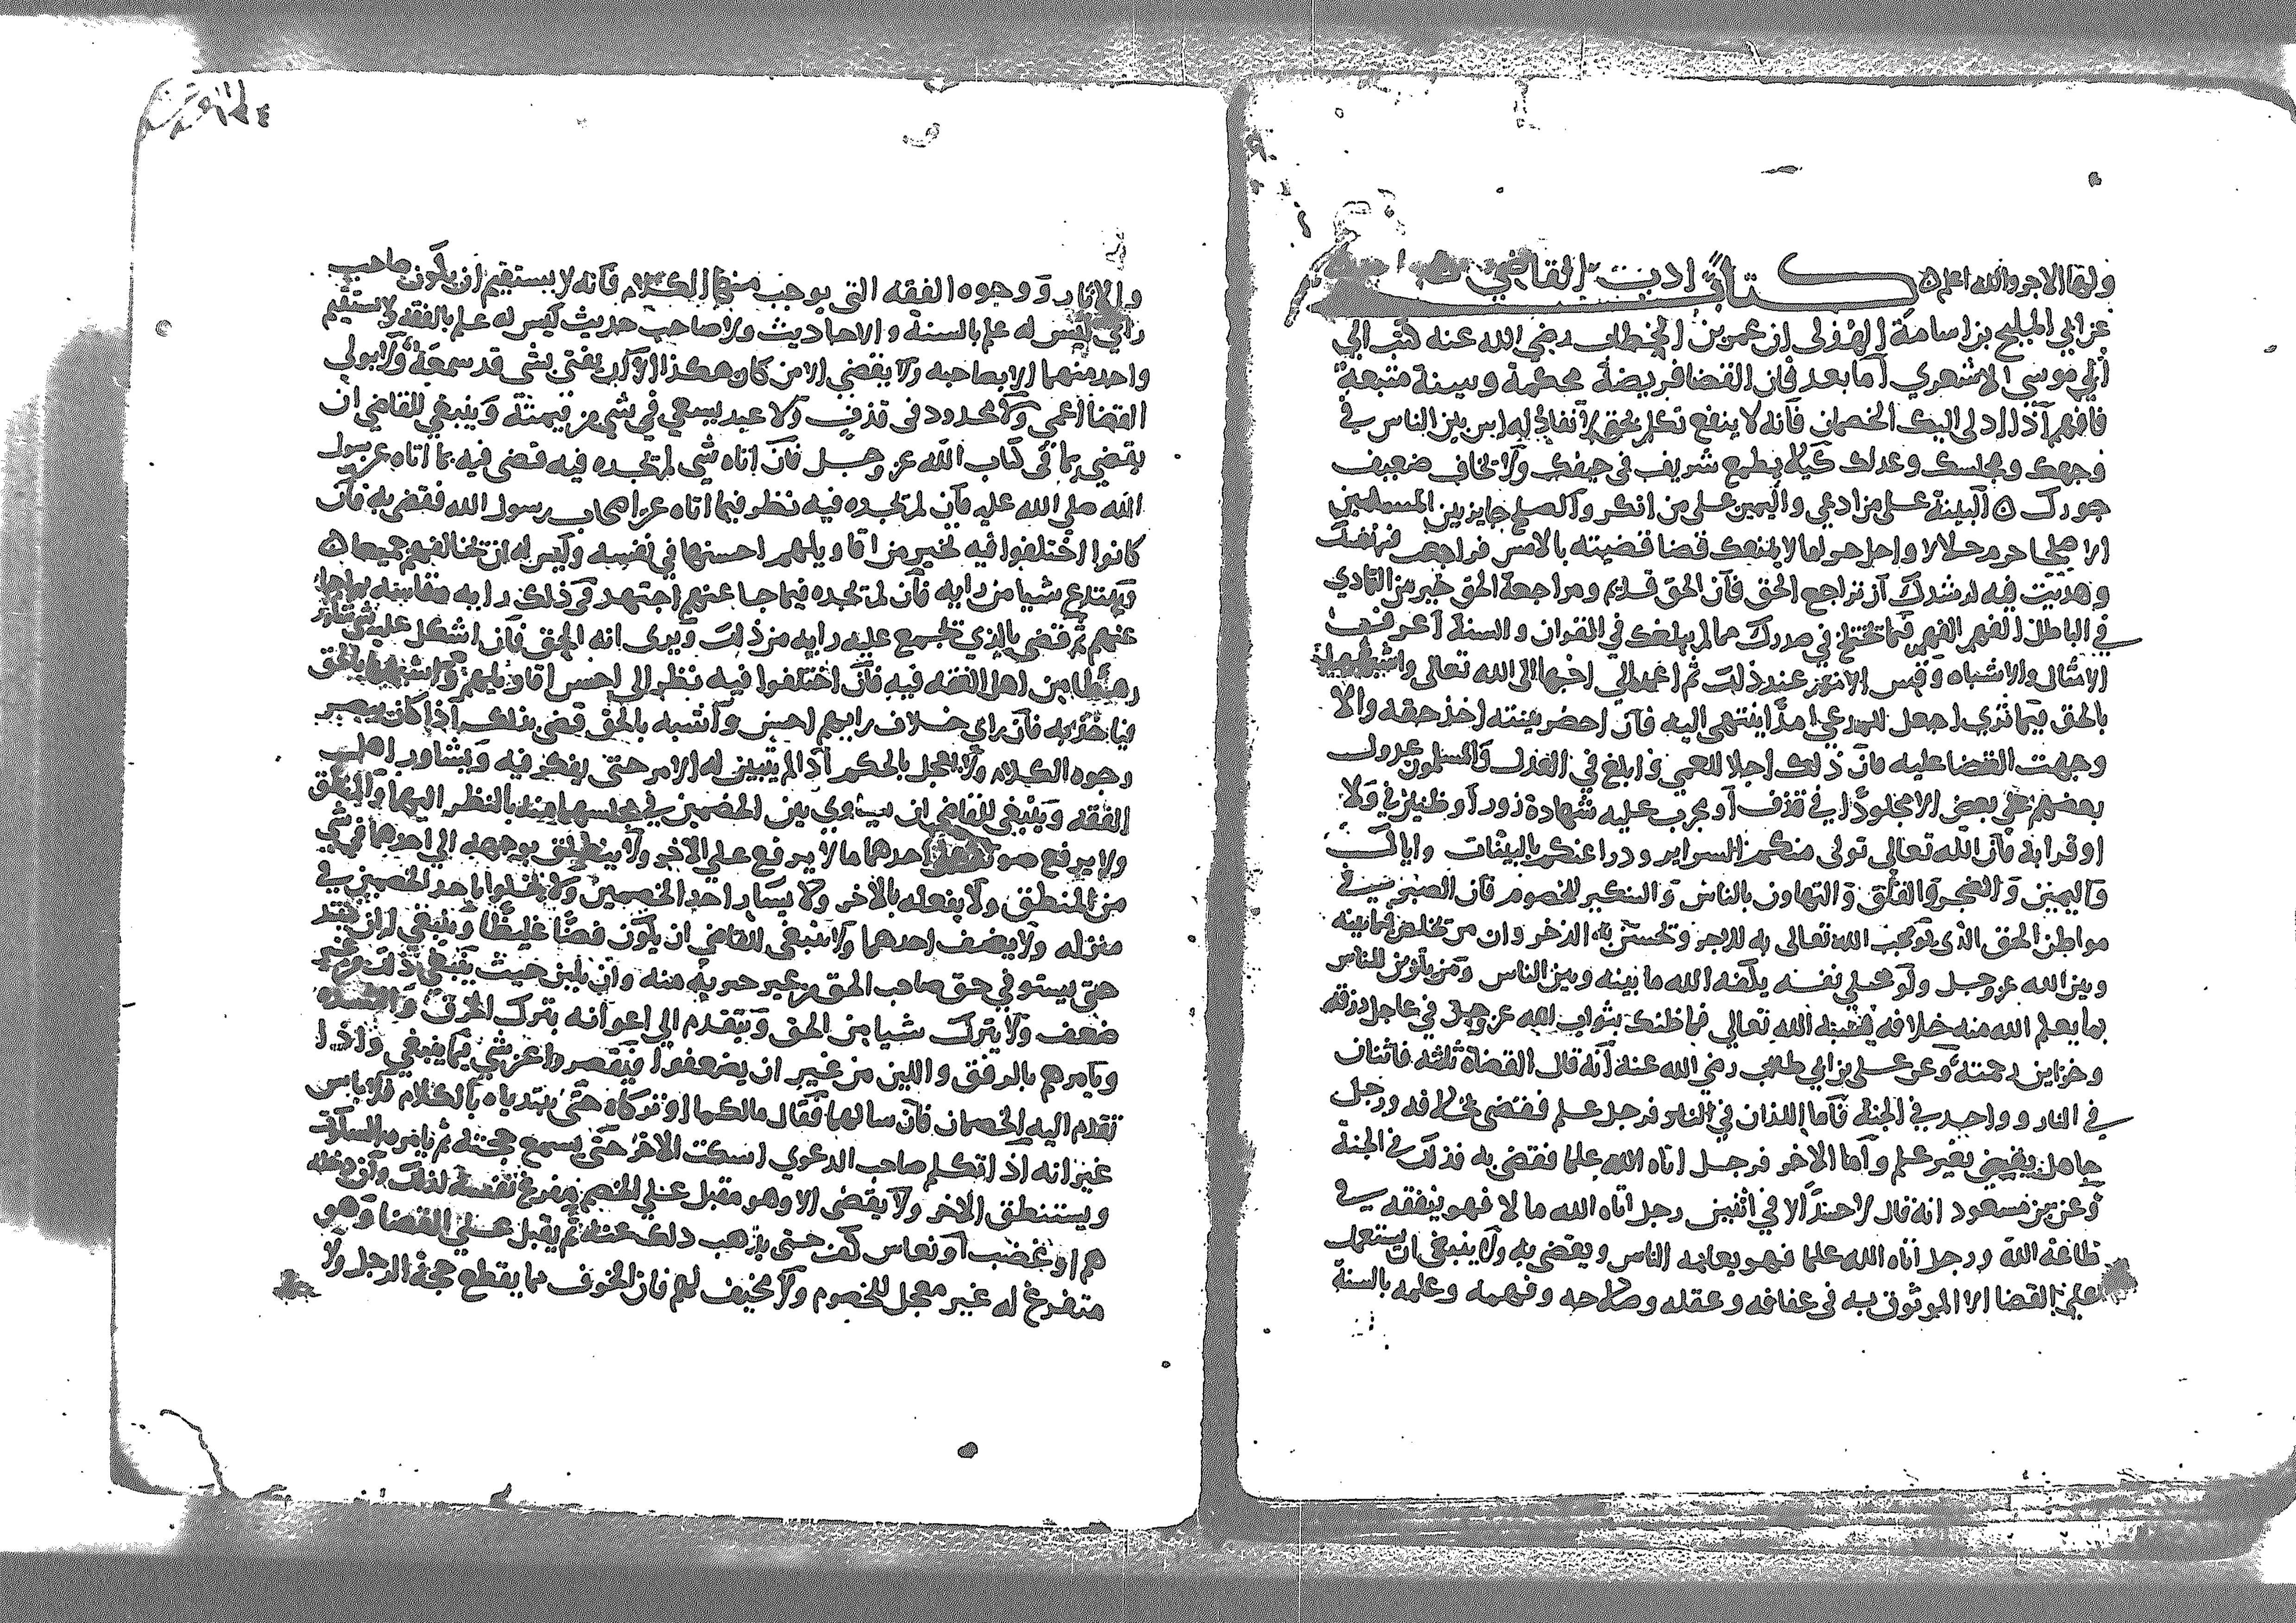 ولها الاجر والله اعلم ٥ كتاب ادب القاضي
عن ابي المليح بن اسامة الهذلي ان عمر بن الخطاب رضي الله عنه كتب الي
ابي موسى الاشعري اما بعد فان القضا فريضة محكمة وسنة متبعة
فافهم اذا ادلى اليك الخصمان فانه لا ينفع تكلم بحق لا نفاذ له اس بين الناس في
وجهك ومجلسك وعدلك كيلا يطمع شريف في حيفك ولا يخاف ضعيف
جورك ٥ البينة على من ادعي واليمين على من انكر والصلح جايز بين المسلمين
الا صلحا حرم حلالا واحل حراما لا يمنعك قضا قضيته بالامس فراجعت فيه نفسك
وهديت فيه لرشدك ان تراجع الحق فان الحق قديم ومراجعة الحق خير من التمادي
في الباطل الفهم الفهم فيما تختلج في صدرك مما لم يبلغك في القران والسنة اعرف
الامثال والاشباه وقس الامور عند ذلك ثم اعمد الي احبها الى الله تعالى واشبهها
بالحق فيما تري اجعل للمدعي امدا ينتهى اليه فان احضر بينته اخذ حقه والا
وجهت القضا عليه فان ذلك اجلا للعمي وابلغ في العذر والمسلمون عدول
بعضهم على بعض الا مجلودا في قذف او مجرب عليه شهادة زور او ظنين في ولا
او قرابة فان الله تعالى تولى منكم السراير ودرا عنكم بالبينات واياك
واليمين والضجر والقلق والتهاون بالناس والتنكير للخصوم فان الصبر في
مواطن الحق الذي يوجب الله تعالى به الاجر وتحسن به الذخر وان من تخلص فيما بينه
وبين الله عز وجل ولو على نفسه يكفه الله ما بينه وبين الناس ومن يتزين للناس
بما يعلم الله منه خلافه الله تعالى فما ظنك بثواب الله عز وجل في عاجل رزقه
وخزاين رحمته وعن على بن ابي طالب رضي الله عنه انه قال القضاة ثلثة فاثنان
في النار وواحد في الجنة فاما اللذان في النار فرجل علم فقضى بخلافه ورجل
جاهل يقضي بغير علم واما الاخر فرجل اتاه الله علما فقضى به فذلك في الجنة
وعن بن مسعود انه قال لا حسد الا في اثنين رجل اتاه الله مالا فهو ينفقه في
طاعة الله ورجل اتاه الله علما فهو يعلمه الناس ويقضي به ولا ينبغي ان يستعمل
على القضا الا الموثوق به في عفافه وعقله وصلاحه وفهمه وعلمه بالسنة
والاثار ووجوه الفقه التي يوجب منها الكلام فانه لا يستقيم ان يكون صاحب
راي ليس له علم بالسنة والاحاديث ولا صاحب حديث ليس له علم بالفقه لا يستقيم
واحد منهما الا بصاحبه ولا يقضي الا من كان هكذا الا ان يفتى بشي قد سمعه ولا يولى
القضا اعمي ولا محدود في قذف ولا عبد يسعي في شي من قيمته وينبغي للقاضي ان
يقضي بما في كتاب الله عز وجل فان اتاه شي لم يجده فيه قضى فيه بما اتاه عن رسول
الله صلى الله عليه فان لم يجده فيه نظر فيما اتاه عن اصحاب رسول الله فقضى به فان
كانوا اختلفوا فيه تخير من اقاويلهم احسنها في نفسه وليس له ان يخالفهم جميعا ٥
ويبتدع شيا من رايه فان لم يجده فيما جا عنهم اجتهد في ذلك رايه
عنهم ثم قضى بالذي تجمع عليه رايه من ذلك ويرى انه الحق فان اشكل عليه شي شاور
رهطا من اهل الفقه فيه فان اختلفوا فيه نظر الى احسن اقاويلهم واشبهها بالحق
فياخذ به فان راي خلاف رايهم احسن واشبه بالحق قضى بذلك اذا كان يبصر
وجوه الكلام ولا يعجل بالحكم اذا لم يتبين له الامر حتى يفكر فيه ويشاور اهل
الفقه وينبغى للقاضي ان يسوي بين الخصمين في مجلسهما منه بالنظر اليهما والمنطق
ولا يرفع صوته على احدهما ما لا يرفع على الاخر ولا ينطلق بوجهه الى احدهما في شي
من المنطق ولا يفعله بالاخر ولا يسار احد الخصمين ولا يخلوا باحد الخصمين في
منزله ولا يضف احدهما ولا ينبغى للقاضي ان يكون فضا غليظا وينبغى ان
حتى يستوفي حق صاحب الحق من غير جبرية منه وان يلين حيث ينبغي ذلك من غير
ضعف ولا يترك شيا من الحق ويتقدم الى اعوانه بترك الخرق
ويامرهم بالرفق واللين من غير ان يضعفوا ويقصروا عن شي فيما ينبغي واذا
تقدم اليه الخصمان فان سالهما فقال مالكما او تركاه حتى يبتدياه بالكلام فلا باس
غير انه اذا تكلم صاحب الدعوي اسكت الاخر حتى يسمع حجته ثم يامره بالسكوت
ويستنطق الاخر ولا يقضى الا وهو مقبل على الخصم مفرغ نفسه لذلك وان دخله
هم او غضب او نعاس كف حتى يذهب ذلك عنه ثم يقبل على القضا وهو
متفرغ له غير معجل للخصوم ولا مخيف لهم فان الخوف مما يقطع حجة الرجل ولا